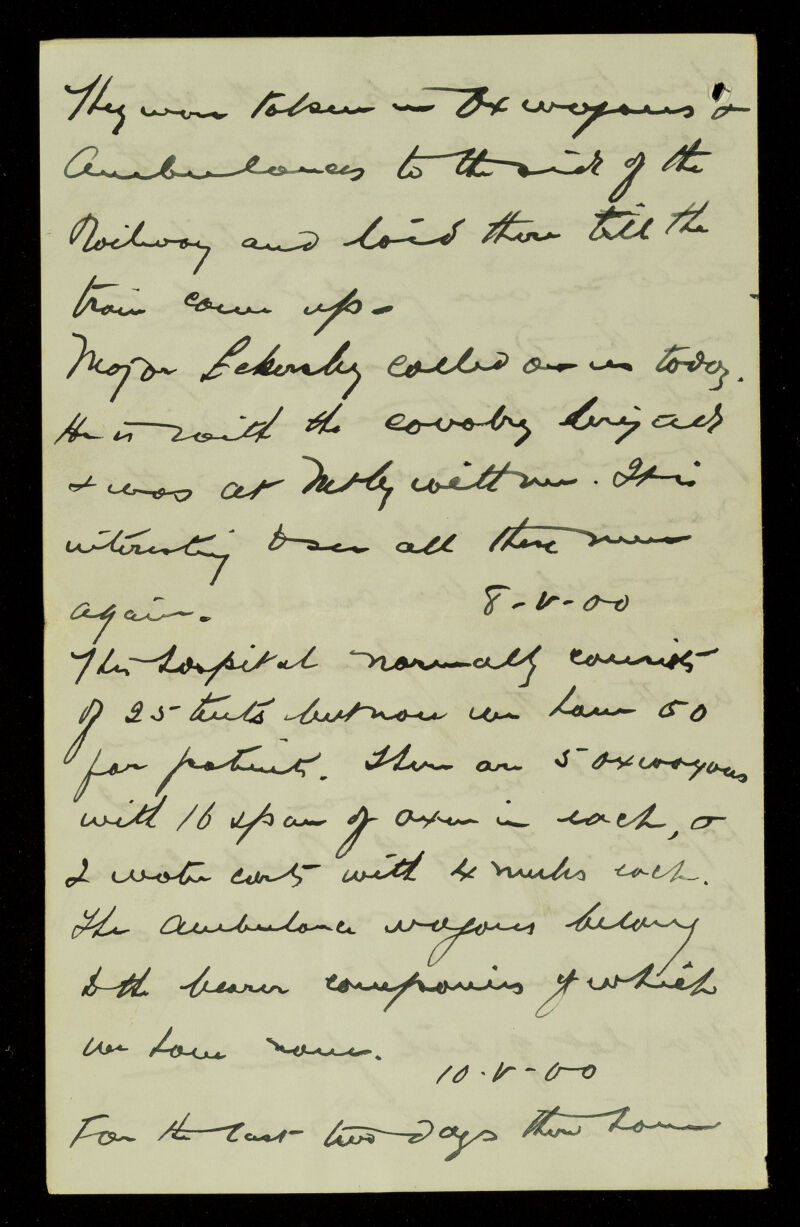 They were taken in Ox wagons &
Ambulances to the side of the
Railway and laid there till the
train came up -
Major Eckersley called on us today.
He is with the cavalry brigade
& was at Netley with me. It is
interesting to see all these men
again. 8-V-00
This hospital normally consists
of 25 tents but now we have 50
for patients. There are 5 ox wagons
with 16 span of oxen in each, &
2 water carts with 4 mules each.
The Ambulance wagons belong
to the bearer companies of which
we have none.
10-V-00
For the last two days there have